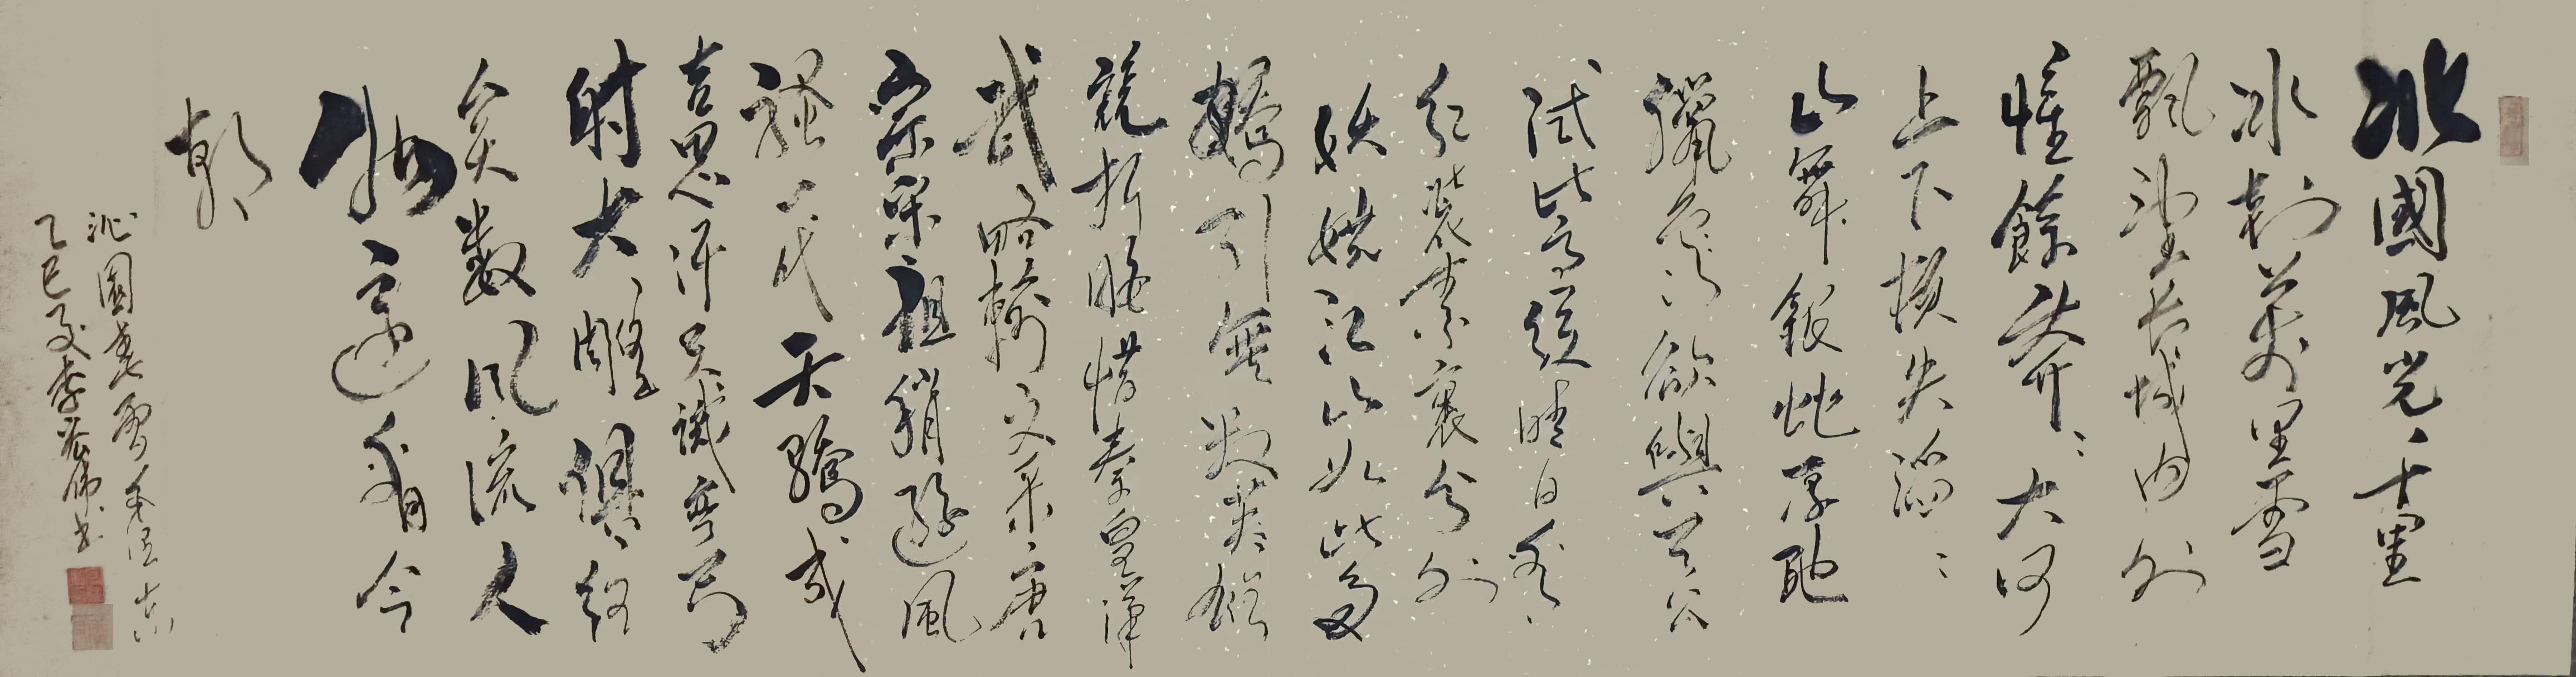 北國風光千里
冰封萬里雪
飄望長城内外
惟餘莽〻大河
上下頓失滔〻
山舞銀蛇原馳
臘象欲與天公
試比高須晴日看
红裝素裹分外
妖嬈江山如此多
嬌引無數英雄
競折腰惜秦皇漢
武略輸文采唐
宗宋祖稍遜風
騷一代天驕成
吉思汗只識弯弓
射大雕俱往
矣數風流人
物還看今
朝
沁園春雪毛澤東
乙巳夏李書